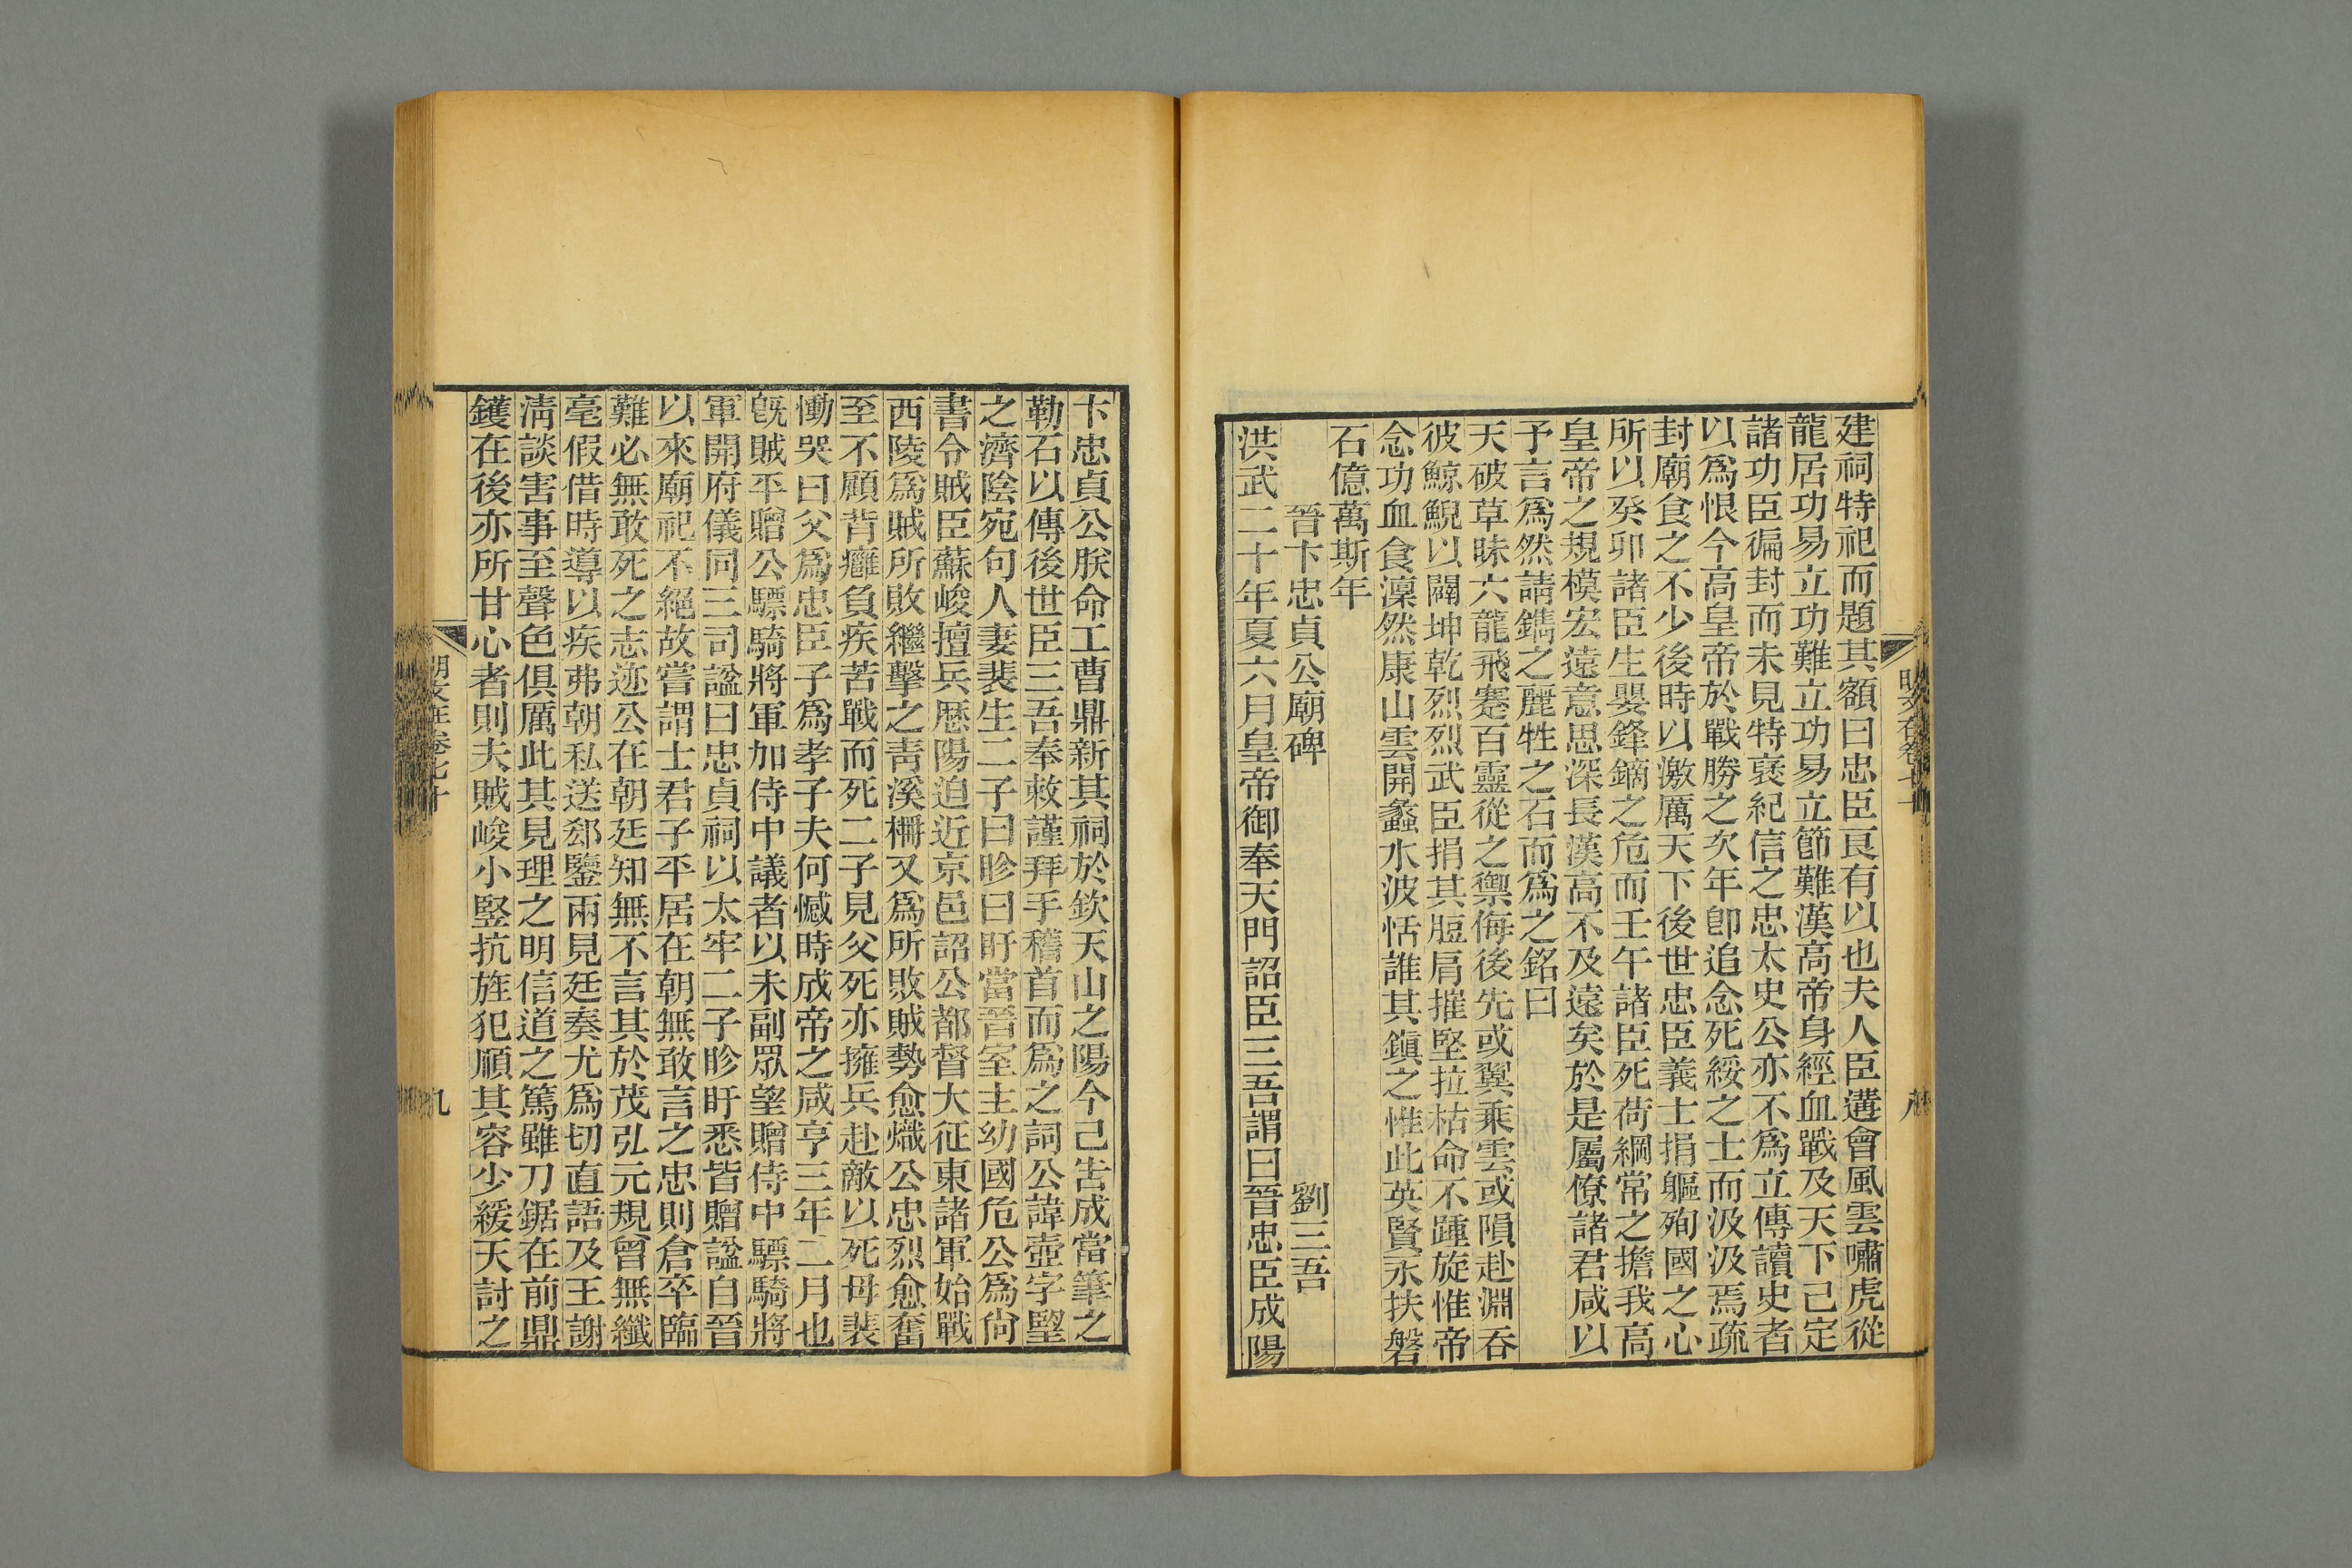 建祠特祀而題其額曰忠臣良有以也夫人臣遘會風雲嘯虎從
龍居功易立功難立功易立節難漢高帝身經血戰及天下己定
諸功臣徧封而未見特褒紀信之忠太史公亦不爲立傳讀史者
以爲恨今高皇帝於戰勝之次年卽追念死綏之士而汲汲焉疏
封廟食之不少後時以激厲天下後世忠臣義士捐軀殉國之心
所以癸卯諸臣生嬰鋒鏑之危而壬午諸臣死荷綱常之擔我高
皇帝之規模宏遠意思深長漢高不及遠矣於是屬僚諸君咸以
予言爲然請鐫之麗牲之石而爲之銘曰
天破草昧六龍飛蹇百靈從之禦侮後先或翼乘雲或隕赴淵吞
彼鯨鯢以闢坤乾烈烈武臣捐其脰肩摧堅拉枯命不踵旋惟帝
念功血食凜然康山雲開蠡水波恬誰其鎭之惟此英賢永扶磐
石億萬斯年
晉卞忠貞公廟碑　劉三吾
洪武二十年夏六月皇帝御奉天門詔臣三吾謂曰晉忠臣成陽
明文在卷七十
八
卞忠貞公朕命工曹鼎新其祠於欽天山之陽今己吿成當筆之
勒石以傳後世臣三吾奉敕謹拜手稽首而爲之詞公諱壺字望
之濟陰宛句人妻裴生二子曰眕曰盱當晉室主幼國危公爲尙
書令賊臣蘇峻擅兵歷陽迫近京邑詔公都督大征東諸軍始戰
西陵爲賊所敗繼擊之靑溪柵又爲所敗賊勢愈熾公忠烈愈奮
至不顧背癰負疾苦戰而死二子見父死亦擁兵赴敵以死母裴
慟哭曰父爲忠臣子爲孝子夫何憾時成帝之咸亨三年二月也
旣賊平贈公驃騎將軍加侍中議者以未副眾望贈侍中驃騎將
軍開府儀同三司諡曰忠貞祠以太牢二子眕盱悉皆贈諡自晉
以來廟祀不絕故嘗謂士君子平居在朝無敢言之忠則倉卒臨
難必無敢死之志迹公在朝廷知無不言其於茂弘元規曾無纖
毫假借時導以疾弗朝私送郄鑒兩見廷奏尤爲切直語及王謝
淸談害事至聲色俱厲此其見理之明信道之篤雖刀鋸在前鼎
鑊在後亦所甘心者則夫賊峻小竪抗旌犯順其容少緩天討之
明文在卷七十
九